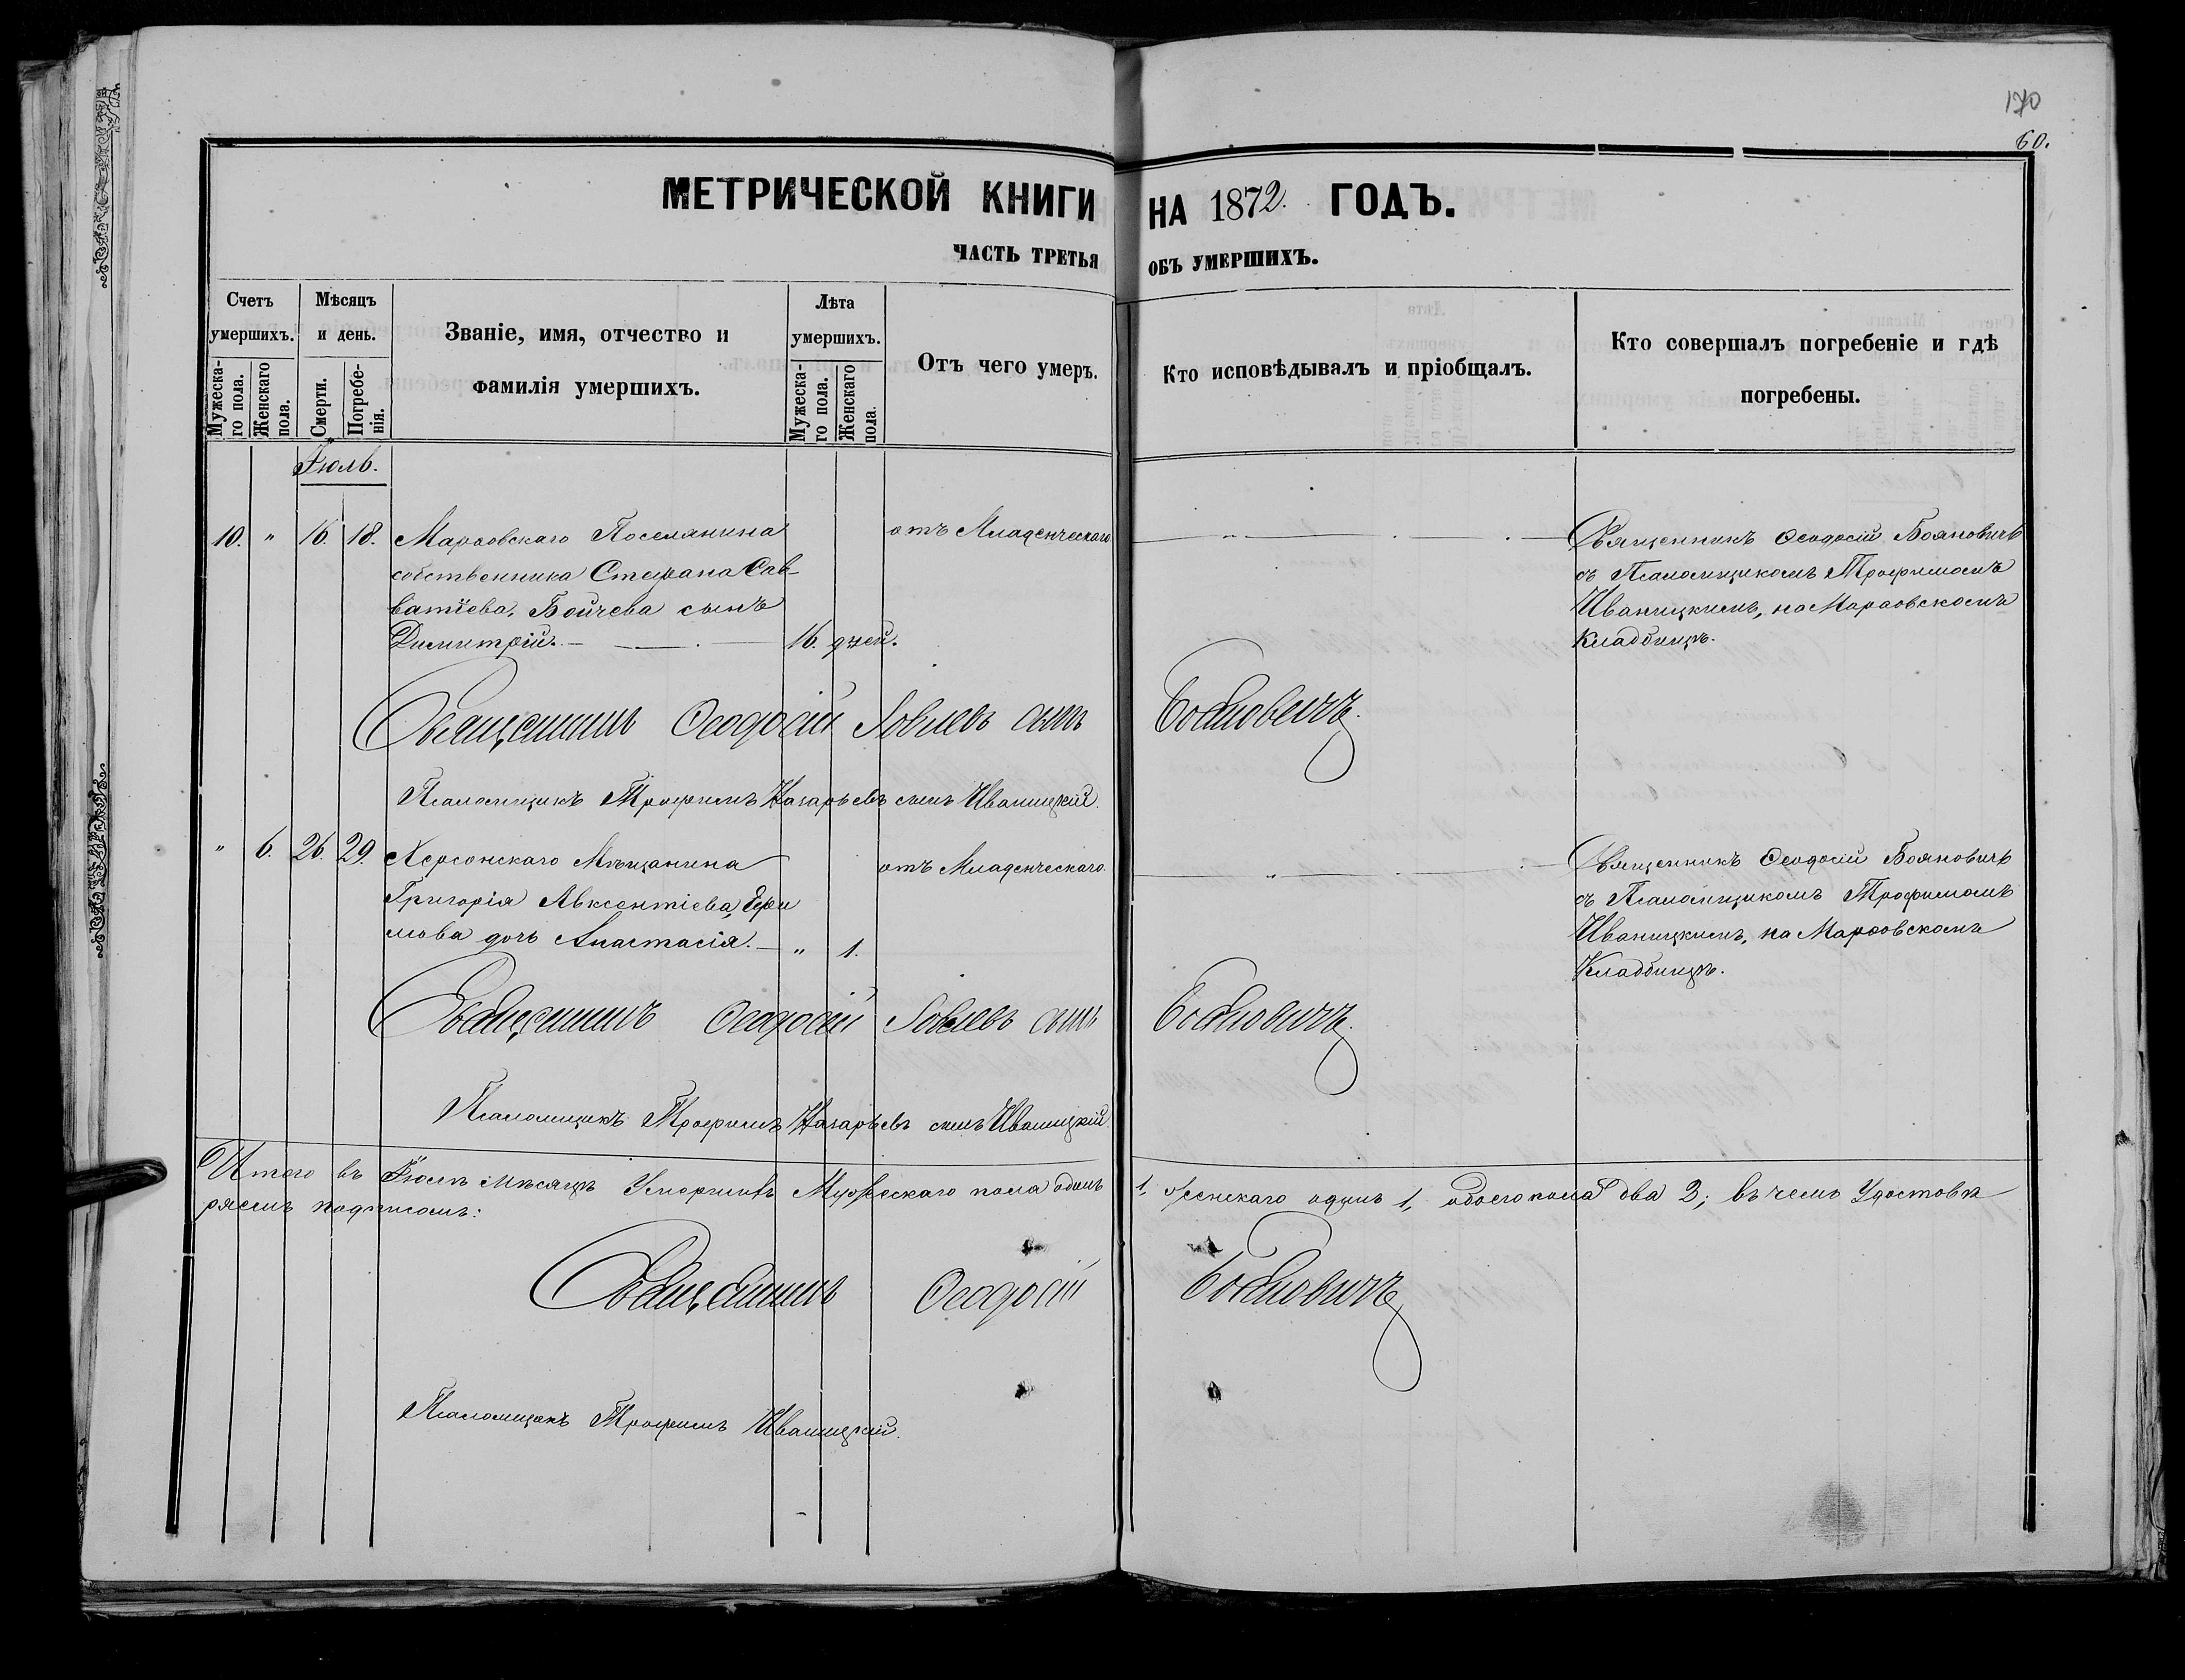 170
60.
МЕТРИЧЕСКОЙ КНИГИ НА 1872. ГОДЪ.
ЧАСТЬ ТРЕТЬЯ ОБЪ УМЕРШИХЪ.
Счетъ умершихъ.
Мужеска-го пола.
Женскаго пола.
Мѣсяцъ и день.
Смерти.
Погребе-нія.
Званіе, имя, отчество и
фамилія умершихъ.
Лѣта умершихъ.
Мужеска-го пола.
Женскаго пола.
Отъ чего умеръ.
Кто исповѣдывалъ и пріобщалъ.
Кто совершалъ погребеніе и гдѣ
погребены.
Іюль.
10. " 16. 18. Марѳовскаго Поселянина
собственника Стефана Сав-
ватіева, Бойчева сынъ
Димитрій. — 16. дней.
отъ Младенческаго
Священникъ Ѳеодосій Бояновичъ
съ Псаломщикомъ Трофимомъ
Иваницкимъ, на Марѳовскомъ
Кладбищѣ.
Священникъ Ѳеодосій Іовлевъ сынъ Бояновичъ.
Псаломщикъ Трофимъ Назарьевъ сынъ Иваницкій.
" 6. 26. 29. Херсонскаго Мѣщанина
Григорія Авксентіева,
мова дочь Анастасія. — " 1.
отъ Младенческаго.
Священникъ Ѳеодосій Бояновичъ
съ Псаломщикомъ Трофимомъ
Иваницкимъ, на Марѳовскомъ
Кладбищѣ.
Священникъ Ѳеодосій Іовлевъ сынъ Бояновичъ.
Псаломщикъ Трофимъ Назарьевъ сынъ Иваницкій.
Итого въ Іюлѣ мѣсяцѣ Умершихъ Мужескаго пола одинъ 1, женскаго одинъ 1, обоего пола два 2; въ чемъ Удостовѣ
ряемъ подписомъ:
Священникъ Ѳеодосій Бояновичъ
Псаломщикъ Трофимъ Иваницкій.